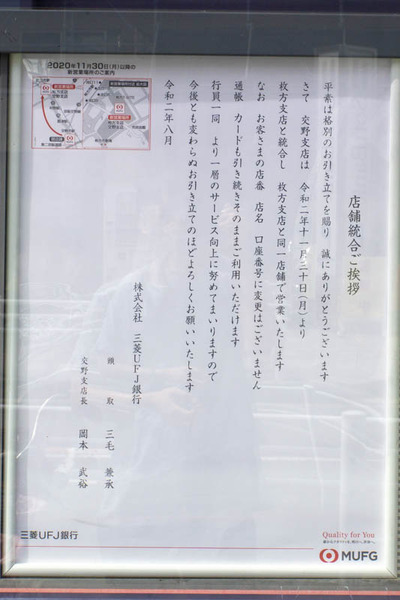 店舗統合ご挨拶
平素は格別のお引き立てを賜り 誠にありがとうございます
さて 交野支店は 令和二年十一月三十日(月)より
枚方支店と統合し 枚方支店と同一店舗で営業いたします
なお お客さまの店番 店名 口座番号に変更はございません
通帳 カードも引き続きそのままご利用いただけます
行員一同 より一層のサービス向上に努めてまいりますので
今後とも変わらぬお引き立てのほどよろしくお願いいたします
令和二年八月
株式会社 三菱UFJ銀行
頭取 三毛 兼承
交野支店長 岡本 武裕
2020年11月30日(月)以降の
新営業場所のご案内
三菱UFJ銀行
Quality for You
MUFG